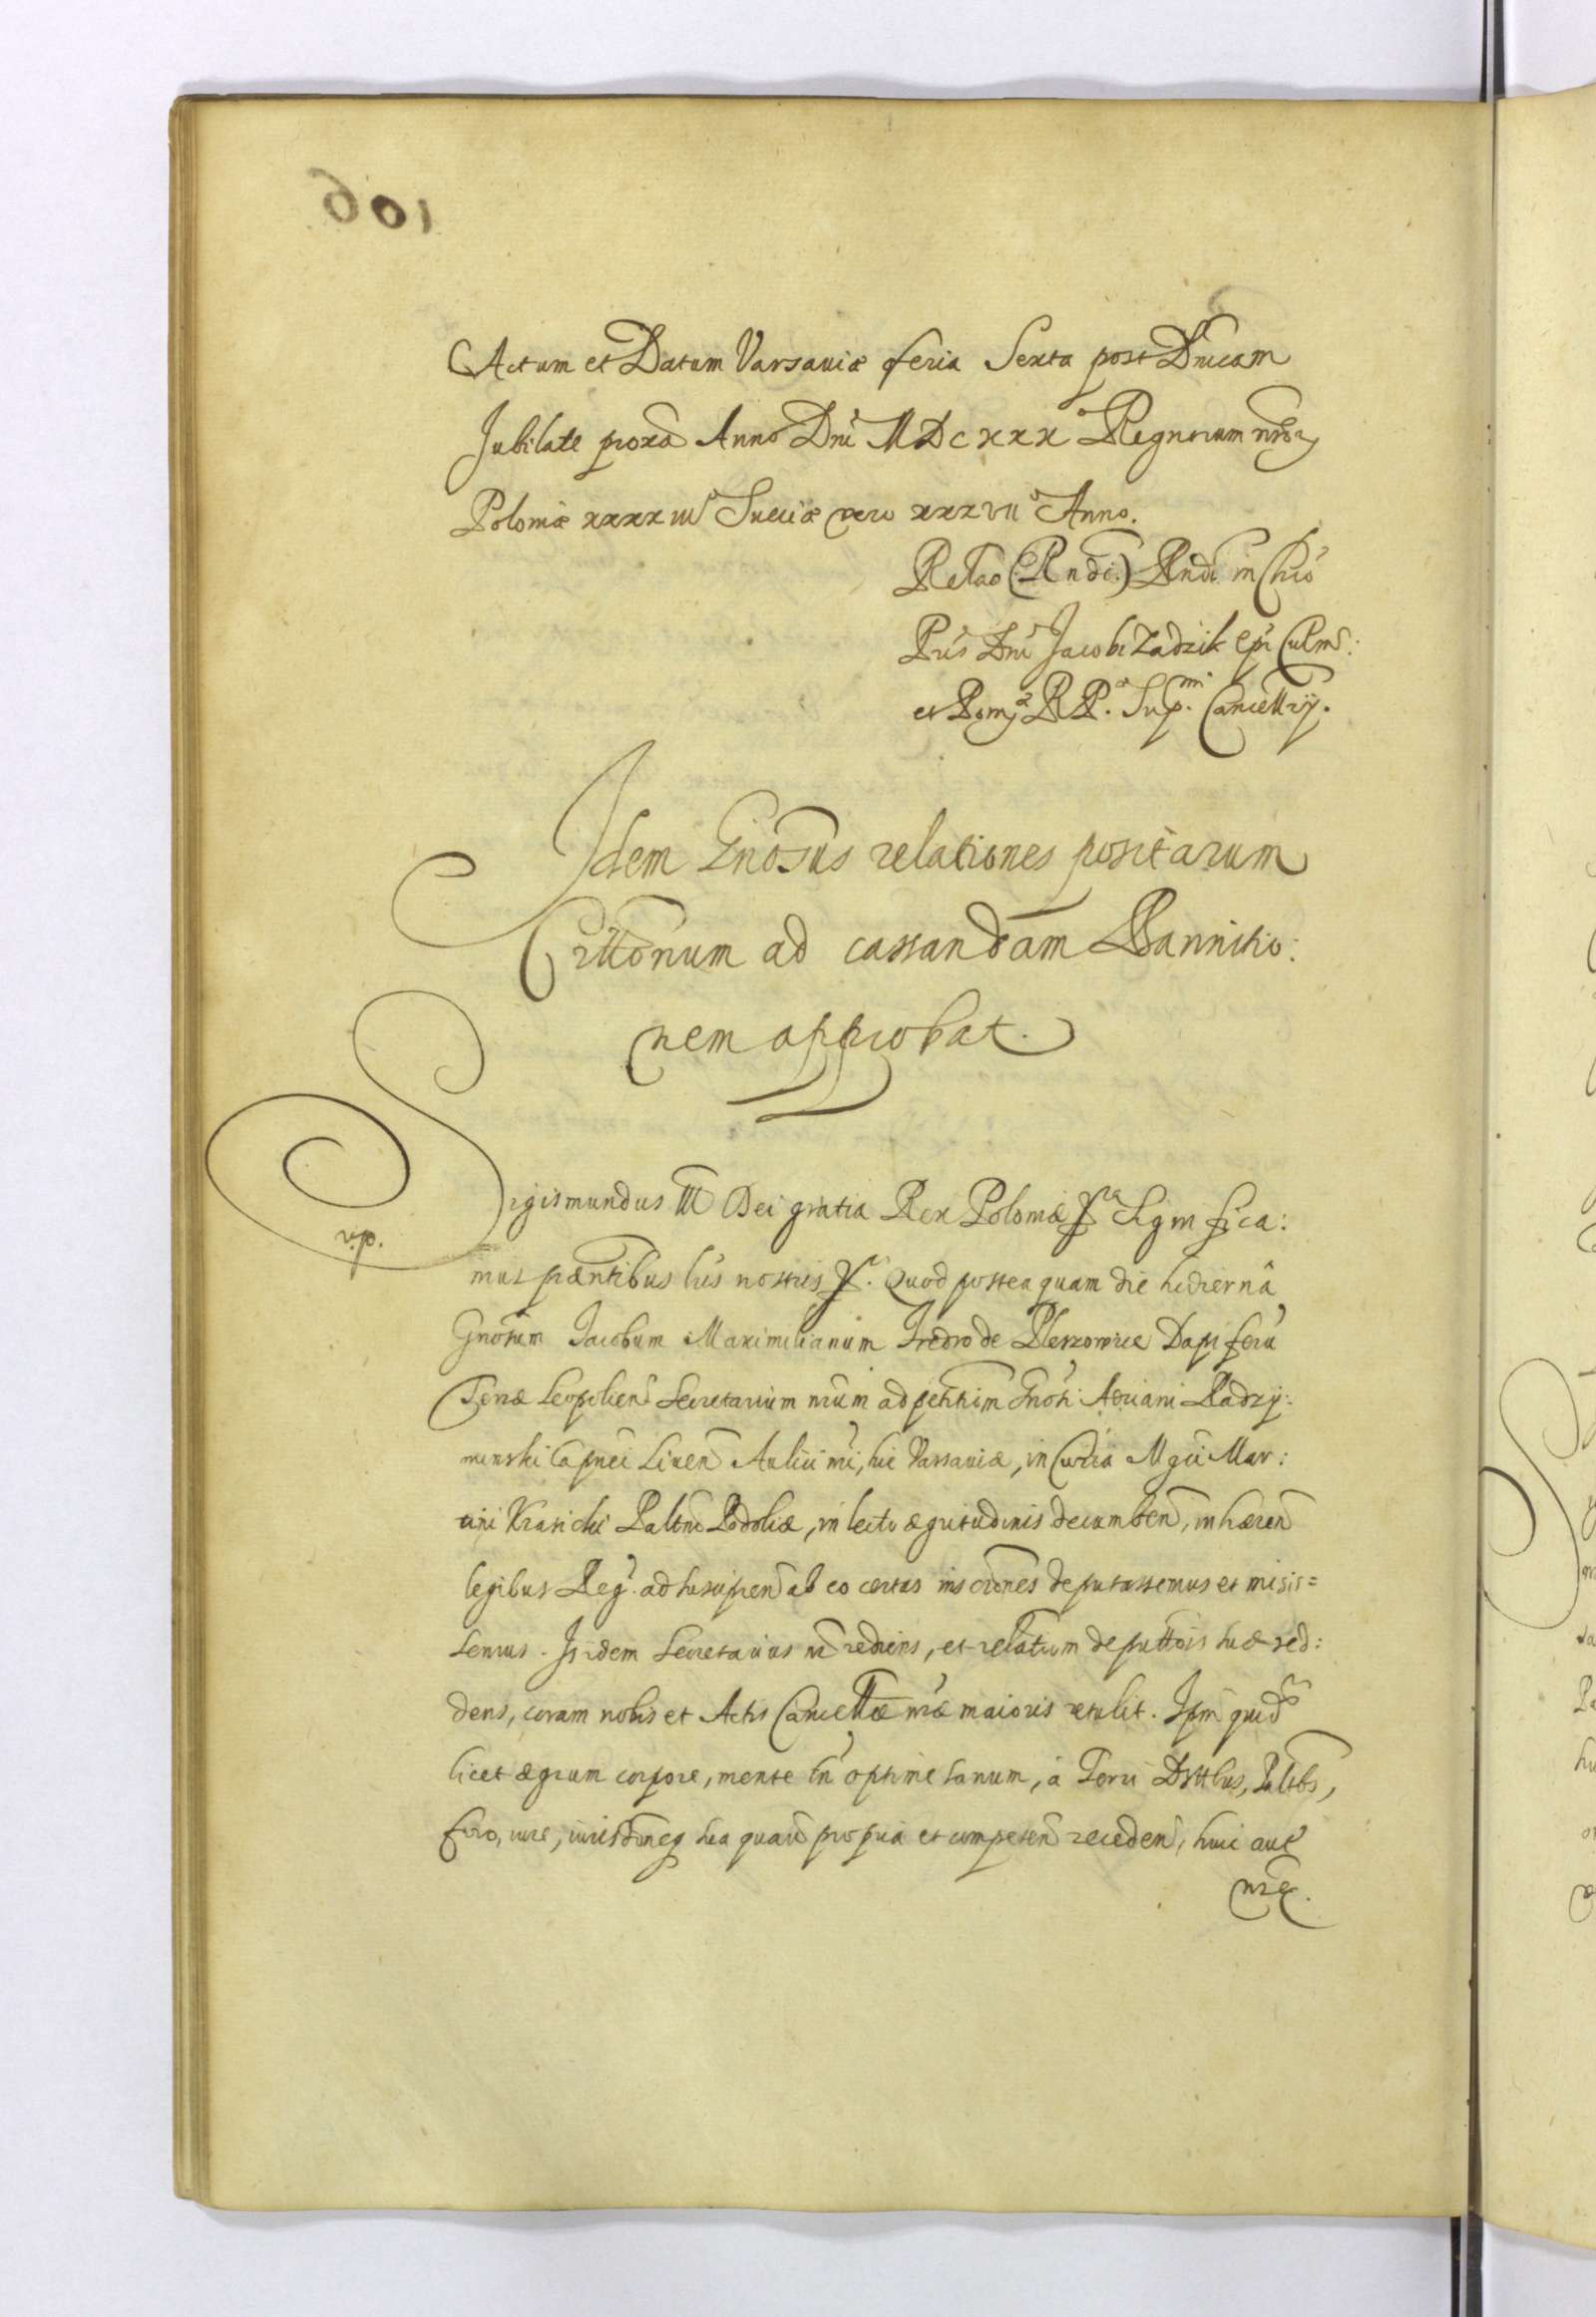 106
Actum et Datum Varsaviæ feria Sexta post Dnicam
Jubilate proxã Anno Dni MDCXXX Regnorum nrōr
Poloniæ xxxxiii Sueciæ vero xxxvii Anno.
Relao (Rndi.) Rndi in Chro
Pris Dni Jacobi Zadzik Epi Culmẽ:
et Pom: R P. Sup. Cancellrij.
Idem Gnosus relationes positarum
Cittonum ad cassandam Bannitio:
nem approbat.
Sigismundus III Dei gratia Rex Poloniæ Significa:
v.p.
mus præntibus lris nostris. Quod posteaquam die hodiernâ
Gnosum Jacobum Maximilianum Fredro de Pleszowice Dapiferũ
Terræ Leopolien Secretarium nrum ad petitim Gnosi Adriani Radzij:
minski Capnei Liuen Aulici nri, hic Varsauiæ, in Curia Mgci Mar:
tini Krasicki Paltni Podoliæ, in lecto ægritudinis decumben, inhæren
legibus Reg. ad suscipien ab eo certas inscriones deputassemus et misis=
semus. Is idem Secretarius nr rediens, et relatiom deputtois suæ red:
dens, coram nobis et Actis Cancellæ nræ maioris retulit. Ipm quid
licet ægrum corpore, mente tn optime sanum, a Terri Dsttbus, Paltbs,
foro, iure, iurisdoneq sua quauis propria et competen receden, huic aut
nræ.